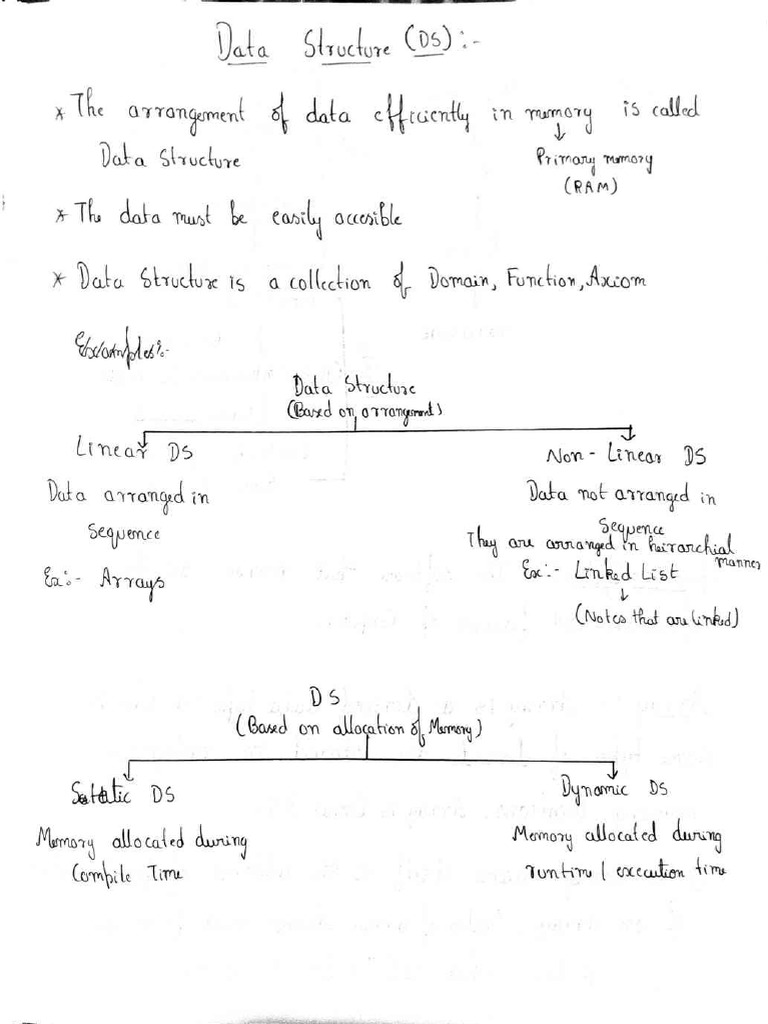 Data Structure (DS):-
* The arrangement of data efficiently in memory is called
Data Structure
Primary memory
(RAM)
* The data must be easily accesible
* Data Structure is a collection of Domain, Function, Axiom
Examples:-
Data Structure
(Based on arrangement)
Linear DS
Data arranged in
Sequence
Ex:- Arrays
Non - Linear DS
Data not arranged in
Sequence
They are arranged in heirarchial
manner
Ex:- Linked List
(Notes that are linked)
DS
(Based on allocation of Memory)
Static DS
Memory allocated during
Compile Time
Dynamic DS
Memory allocated during
runtime / execution time